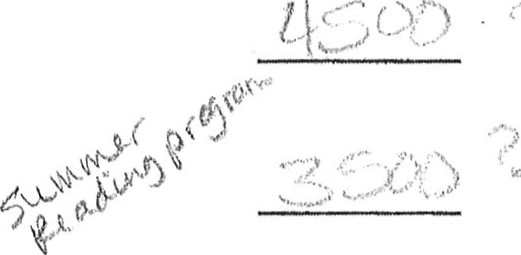 4500 ?
summer
Reading program
3500 ?